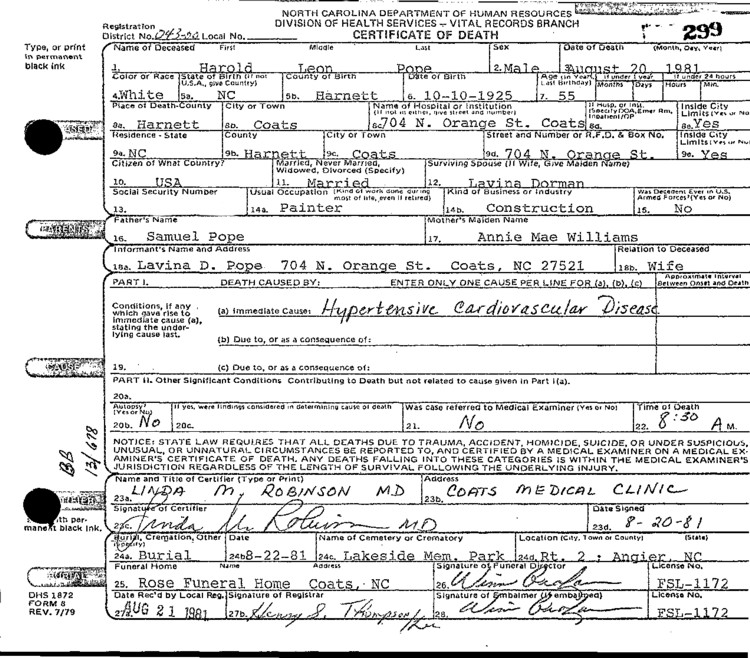 NORTH CAROLINA DEPARTMENT OF HUMAN RESOURCES
DIVISION OF HEALTH SERVICES - VITAL RECORDS BRANCH
CERTIFICATE OF DEATH
299
Registration
District No. 043-00 Local No.
Type, or print
in permanent
black ink
Name of Deceased First Middle Last Sex Date of Death (Month, Day, Year)
1. Harold Leon Pope 2. Male 3. August 20 1981
Color or Race State of Birth (if not U.S.A., give Country) County of Birth Date of Birth Age (in Years, Last Birthday) If under 1 year Months Days If under 24 hours Hours Min.
4. White 5a. NC 5b. Harnett 6. 10-10-1925 7. 55
Place of Death-County City or Town Name of Hospital or Institution (If not in either, give street and number) If Hosp. or Inst. (Specify) DOA, Emer Rm, Inpatient/OP Inside City Limits (Yes or No)
8a. Harnett 8b. Coats 8c. 704 N. Orange St. Coats 8d. 8e. Yes
Residence - State County City or Town Street and Number or R.F.D. & Box No. Inside City Limits (Yes or No)
9a. NC 9b. Harnett 9c. Coats 9d. 704 N. Orange St. 9e. Yes
Citizen of What Country? Married, Never Married, Widowed, Divorced (Specify) Surviving Spouse (If Wife, Give Maiden Name)
10. USA 11. Married 12. Lavina Dorman
Social Security Number Usual Occupation (Kind of work done during most of life, even if retired) Kind of Business or Industry Was Decedent Ever in U.S. Armed Forces? (Yes or No)
13. 14a. Painter 14b. Construction 15. No
PARENTS
Father's Name Mother's Maiden Name
16. Samuel Pope 17. Annie Mae Williams
Informant's Name and Address Relation to Deceased
18a. Lavina D. Pope 704 N. Orange St. Coats, NC 27521 18b. Wife
PART I. DEATH CAUSED BY: ENTER ONLY ONE CAUSE PER LINE FOR (a), (b), (c) Approximate Interval Between Onset and Death
Conditions, if any
which gave rise to
immediate cause (a),
stating the under-
lying cause last.
(a) Immediate Cause: Hypertensive Cardiovascular Disease
(b) Due to, or as a consequence of:
CAUSE
19. (c) Due to, or as a consequence of:
PART II. Other Significant Conditions Contributing to Death but not related to cause given in Part I(a).
20a.
Autopsy? (Yes or No) If yes, were findings considered in determining cause of death Was case referred to Medical Examiner (Yes or No) Time of Death
20b. No 20c. 21. No 22. 8:30 A M.
NOTICE: STATE LAW REQUIRES THAT ALL DEATHS DUE TO TRAUMA, ACCIDENT, HOMICIDE, SUICIDE, OR UNDER SUSPICIOUS,
UNUSUAL, OR UNNATURAL CIRCUMSTANCES BE REPORTED TO, AND CERTIFIED BY A MEDICAL EXAMINER ON A MEDICAL EX-
AMINER'S CERTIFICATE OF DEATH. ANY DEATHS FALLING INTO THESE CATEGORIES IS WITHIN THE MEDICAL EXAMINER'S
JURISDICTION REGARDLESS OF THE LENGTH OF SURVIVAL FOLLOWING THE UNDERLYING INJURY.
BB
13/678
Name and Title of Certifier (Type or Print) Address
23a. LINDA M. ROBINSON MD 23b. COATS MEDICAL CLINIC
Signature of Certifier Date Signed
23c. Linda M. Robinson MD 23d. 8-20-81
with per-
manent black ink.
Burial, Cremation, Other (Specify) Date Name of Cemetery or Crematory Location (City, Town or County) (State)
24a. Burial 24b. 8-22-81 24c. Lakeside Mem. Park 24d. Rt. 2 ; Angier, NC
BURIAL
Funeral Home Name Address Signature of Funeral Director License No.
25. Rose Funeral Home Coats, NC 26. FSL-1172
DHS 1872
FORM 8
REV. 7/79
Date Rec'd by Local Reg. Signature of Registrar Signature of Embalmer (if embalmed) License No.
27a. AUG 21 1981 27b. Henry S. Thompson/ 28. FSL-1172